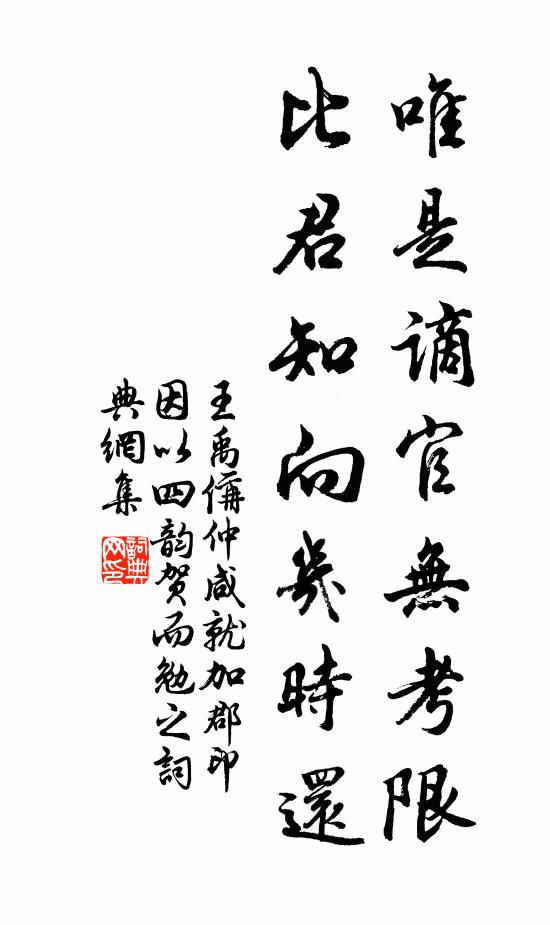 唯是謫官無考限
比君知向幾時還
王禹偁仲咸就加郡印
因以四韵賀而勉之詞
典網集
詞典網印